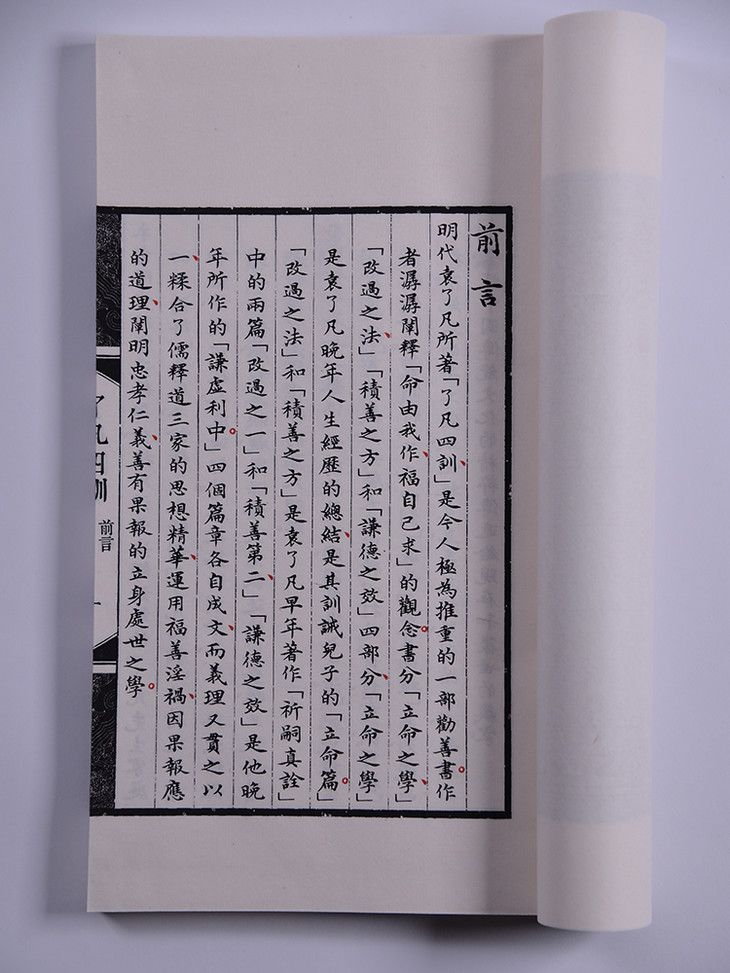 前言
明代袁了凡所著「了凡四訓」、是今人極為推重的一部勸善書。作
者潺潺闡釋「命由我作、福自己求」的觀念。書分「立命之學」、
「改過之法」、「積善之方」和「謙德之效」四部分、「立命之學」
是袁了凡晚年人生經歷的總結、是其訓誡兒子的「立命篇」。
「改過之法」和「積善之方」是袁了凡早年著作「祈嗣真詮」
中的兩篇「改過之一」和「積善第二」、「謙德之效」是他晚
年所作的「謙虛利中」。四個篇章各自成文、而義理又貫之以
一、糅合了儒釋道三家的思想精華、運用福善淫禍、因果報應
的道理、闡明忠孝仁義、善有果報的立身處世之學。
了凡四訓
前言
一